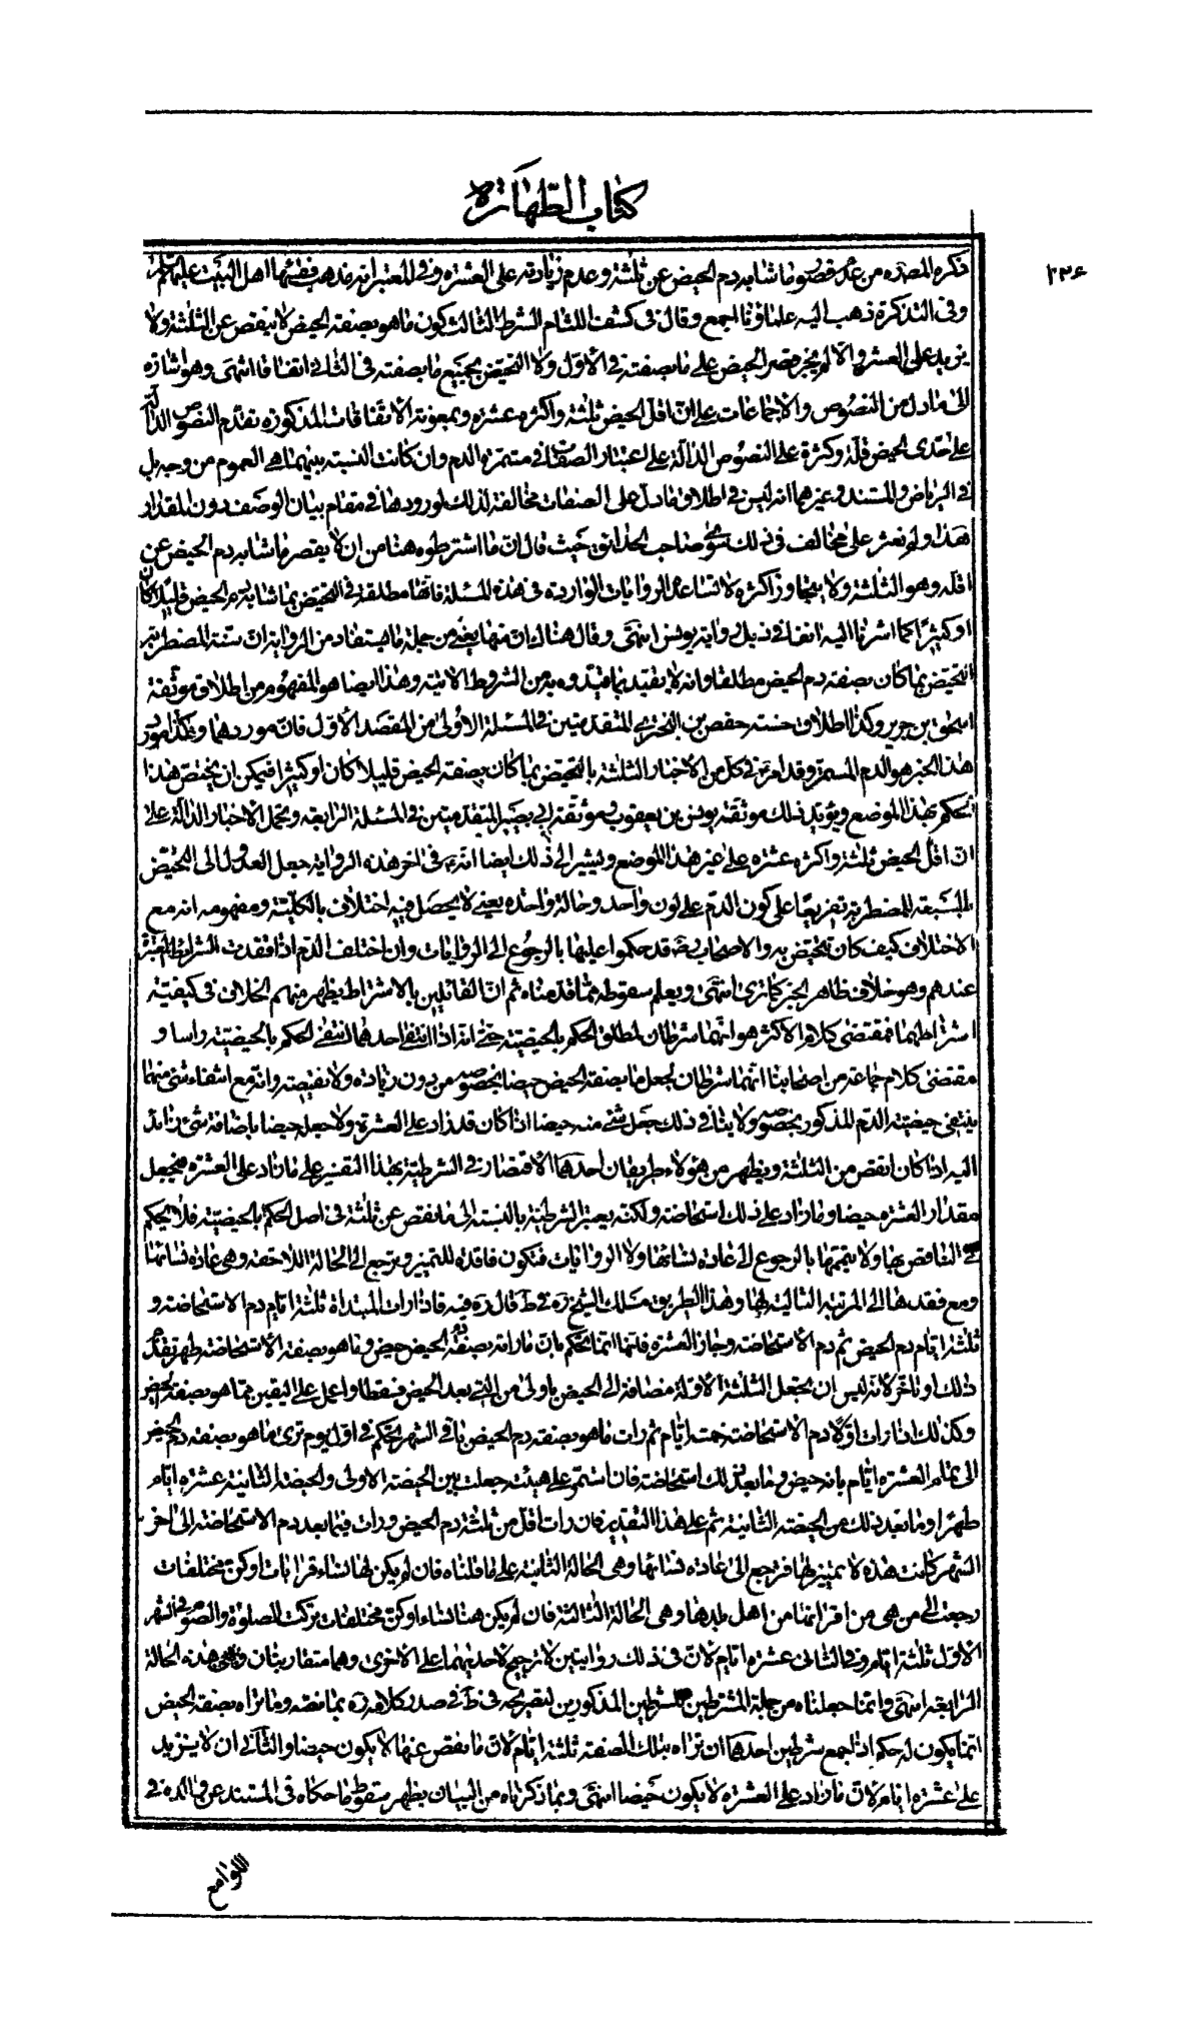 كتاب الطهارة
٢٣٤
ذكره المصنّف ره من عدم قصور ما شابه دم الحيض عن ثلثة وعدم زيادته على العشرة وفى المعتبر انه مذهب فقهاء اهل البيت عليهم السلام
وفى التذكرة ذهب اليه علماؤنا اجمع وقال فى كشف اللثام الشرط الثالث كون ما هو بصفة الحيض لا ينقص عن الثلثة ولا
يزيد على العشرة والا لم يجز قصر الحيض على ما بصفته فى الأول ولا التحيّض بجميع ما بصفته فى الثانى اتفاقا انتهى وهو اشارة
الى ما دل من النصوص والاجماعات على ان اقل الحيض ثلثة واكثره عشرة وبمعونة الاتفاقات المذكورة يقدم النصوص الدالة
على حدى الحيض قلة وكثرة على النصوص الدالة على اعتبار الصفات فى مستمرة الدم وان كانت النسبة بينهما هى العموم من وجه بل
فى الرياض والمستند وغيرهما انه ليس فى اطلاق ما دل على الصفات مخالفة لذلك لورودها فى مقام بيان الوصف دون المقدار
هذا ولم نعثر على مخالف فى ذلك سوى صاحب الحدائق حيث قال ان ما اشترطوه هنا من ان لا يقصر ما شابه دم الحيض عن
اقله وهو الثلثة ولا يتجاوز اكثره لا تساعده الروايات الواردة فى هذه المسئلة فانها مطلقة فى التحيض بما شابه دم الحيض قليلا كان
او كثيرا كما اشرنا اليه انفا فى ذيل رواية يونس انتهى وقال هناك ان منها يعنى من جملة ما يستفاد من الرواية ان سنة المضطربة
التحيض بما كان بصفة دم الحيض مطلقا وانه لا يتقيد بما قيدوه به من الشروط الاتية وهذا ايضا هو المفهوم من اطلاق موثقة
اسحق بن جرير وكذا اطلاق حسنة حفص بن البخترى المتقدمتين فى المسئلة الاولى من المقصد الأول فان موردهما وكذا مورد
هذا الخبر هو الدم المستمر وقد امر فى كل من الأخبار الثلثة بالتحيض بما كان بصفة الحيض قليلا كان او كثيرا فيمكن ان يختص هذا
الحكم بهذا الموضع ويؤيد ذلك موثقة يونس بن يعقوب وموثقة ابى بصير المتقدمتين فى المسئلة الرابعة ويحمل الاخبار الدالة على
ان اقل الحيض ثلثة واكثره عشرة على غير هذا الموضع ويشير الى ذلك ايضا انه ع فى اخر هذه الرواية جعل العدول الى التحيض
بالسبعة للمضطربة تفريعا على كون الدم على لون واحد وحالة واحدة يعنى لا يحصل فيه اختلاف بالكلية ومفهومه انه مع
الاختلاف كيف كان تتحيض به والاصحاب رض قد حكموا عليها بالرجوع الى الروايات وان اختلف الدم اذا فقدت الشرائط المعتبرة
عندهم وهو خلاف ظاهر الخبر كما ترى انتهى ويعلم سقوطه مما قدمناه ثم ان القائلين بالاشتراط يظهر منهم الخلاف فى كيفية
اشتراطهما فمقتضى كلام الاكثر هو انهما شرطان لمطلق الحكم بالحيضية حتى انه اذا انتفى احدهما انتفى الحكم بالحيضية راسا و
مقتضى كلام جماعة من اصحابنا انهما شرطان لجعل ما بصفة الحيض حيضا بخصوصه من دون زيادة ولا نقيصة وانه مع انتفاء شئ منهما
ينتفى حيضية الدم المذكور بخصوصه ولا ينافى ذلك جعل شئ منه حيضا اذا كان قد زاد على العشرة ولا جعله حيضا باضافة شئ زائد
اليه اذا كان انقص من الثلثة ويظهر من هؤلاء طريقان احدهما الاقتصار فى الشرطية بهذا التفسير على ما زاد على العشرة فيجعل
مقدار العشرة حيضا وما زاد على ذلك استحاضة ولكنه يعتبر الشرطية بالنسبة الى ما نقص عن ثلثة فى اصل الحكم بالحيضية فلا يحكم
فى الناقص بها ولا يتممها بالرجوع الى عادة نسائها ولا الروايات فتكون فاقدة للتميز وترجع الى الحالة اللاحقة وهى عادة نسائها
ومع فقدها الى المرتبة التالية لها وهذا الطريق مسلك الشيخ ره فى ط قال ره فيه فاذا رات المبتداة ثلثة ايام دم الاستحاضة و
ثلثة ايام دم الحيض ثم دم الاستحاضة وجاز العشرة فانما انما الحكم بان ما راته بصفة دم الحيض حيض وما هو بصفة الاستحاضة طهر تقدم
ذلك او تاخر لانه ليس ان يجعل الثلثة الاولة مضافة الى الحيض باولى من التى بعد الحيض فسقطا وعمل على اليقين بما هو بصفة الحيض
وكذلك اذا رات اولا دم الاستحاضة خمسة ايام ثم رات ما هو بصفة دم الحيض باقى الشهر يحكم فى اول يوم ترى ما هو بصفة دم الحيض
الى تمام العشرة ايام بانه حيض وما بعد ذلك استحاضة فان استمر على هيئته جعلت بين الحيضة الاولى والحيضة الثانية عشرة ايام
طهرا وما بعد ذلك من الحيضة الثانية ثم على هذا التقدير فان رات اقل من ثلثة دم الحيض ورات فيما بعد دم الاستحاضة الى اخر
الشهر كانت هذه لا تمييز لها فترجع الى عادة نسائها وهى الحالة الثانية على ما قلناه فان لم يكن لها نساء قرابات او كن مختلفات
رجعت الى من هى من اقرانها من اهل بلدها وهى الحالة الثالثة فان لم يكن هناك نساء او كن مختلفات تركت الصلوة والصوم فى الشهر
الاول ثلثة ايام وفى الثانى عشرة ايام لان فى ذلك روايتين لا ترجيح لاحديهما على الاخرى وهما متقاربتان وهى هذه الحالة
الرابعة انتهى وانما جعلناه من جملة المشترطين للشرطين المذكورين لتصريحه فى ط فى صدر كلامه ره بما نصه وما تراه بصفة الحيض
انما يكون له حكم اذا جمع شرطين احدهما ان تراه بتلك الصفة ثلثة ايام لان ما نقص عنها لا يكون حيضا والثانى ان لا يزيد
على عشرة ايام لان ما زاد على العشرة لا يكون حيضا انتهى وبما ذكرناه من البيان يظهر سقوط ما حكاه فى المستند عن والده فى
اللوامع